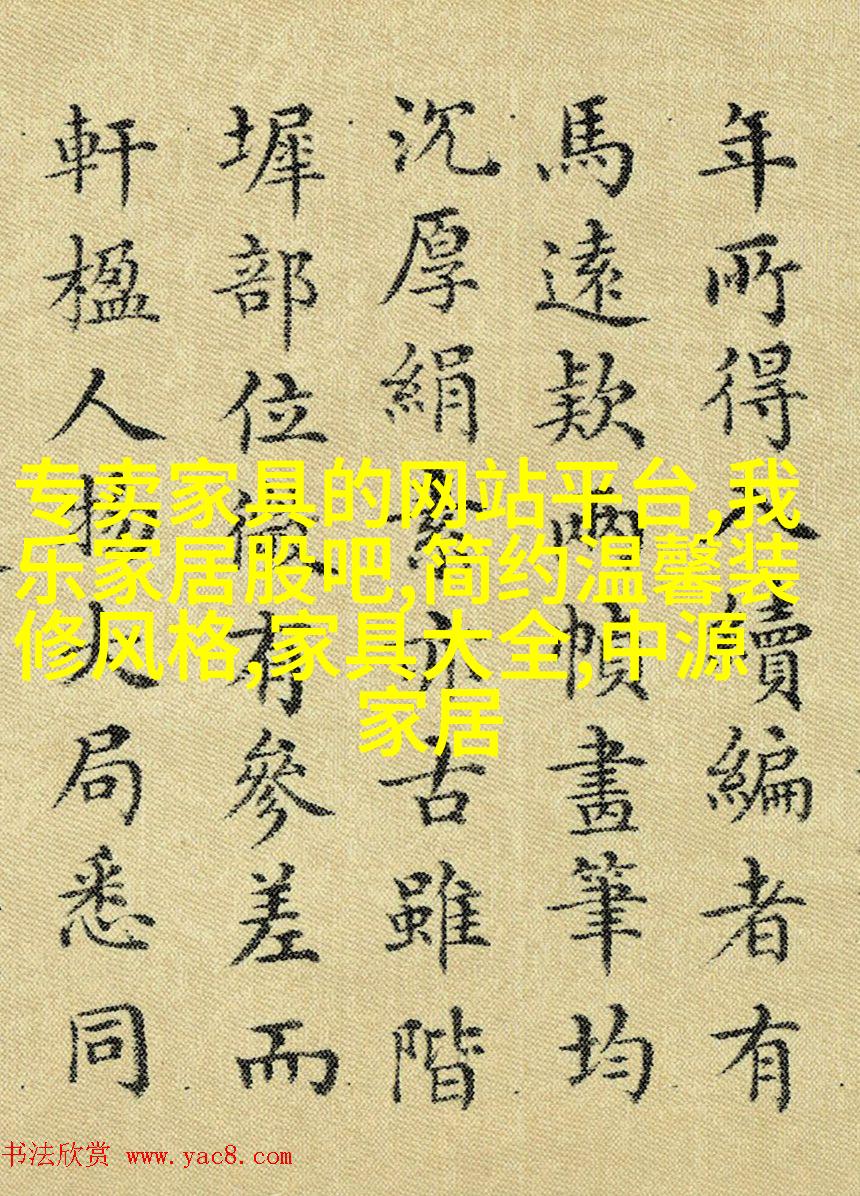 年所得入續編者有
馬遠款兩幀畫筆均
沉厚絹素亦古雖階
墀部位微有參差而
軒楹人物大局悉同
专卖家具的网站平台,我
乐家居股吧,简约温馨装
修风格,家具大全,中源
家居
书法欣赏 www.yac8.com